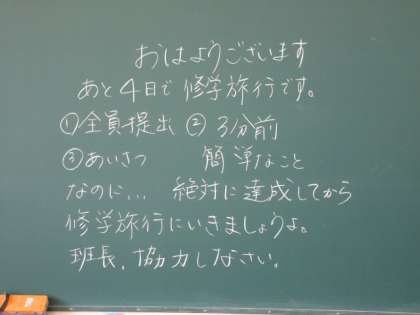 おはようございます
あと4日で修学旅行です。
①全員提出 ② 3分前
③あいさつ 簡単なこと
なのに... 絶対に達成してから
修学旅行にいきましょうよ。
班長、協力しなさい。